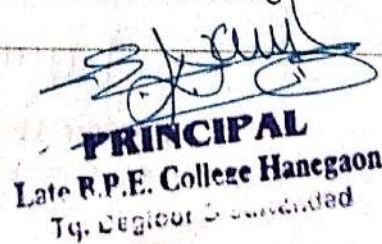 PRINCIPAL
Late R.P.E. College Hanegaon
Tq. Degloor